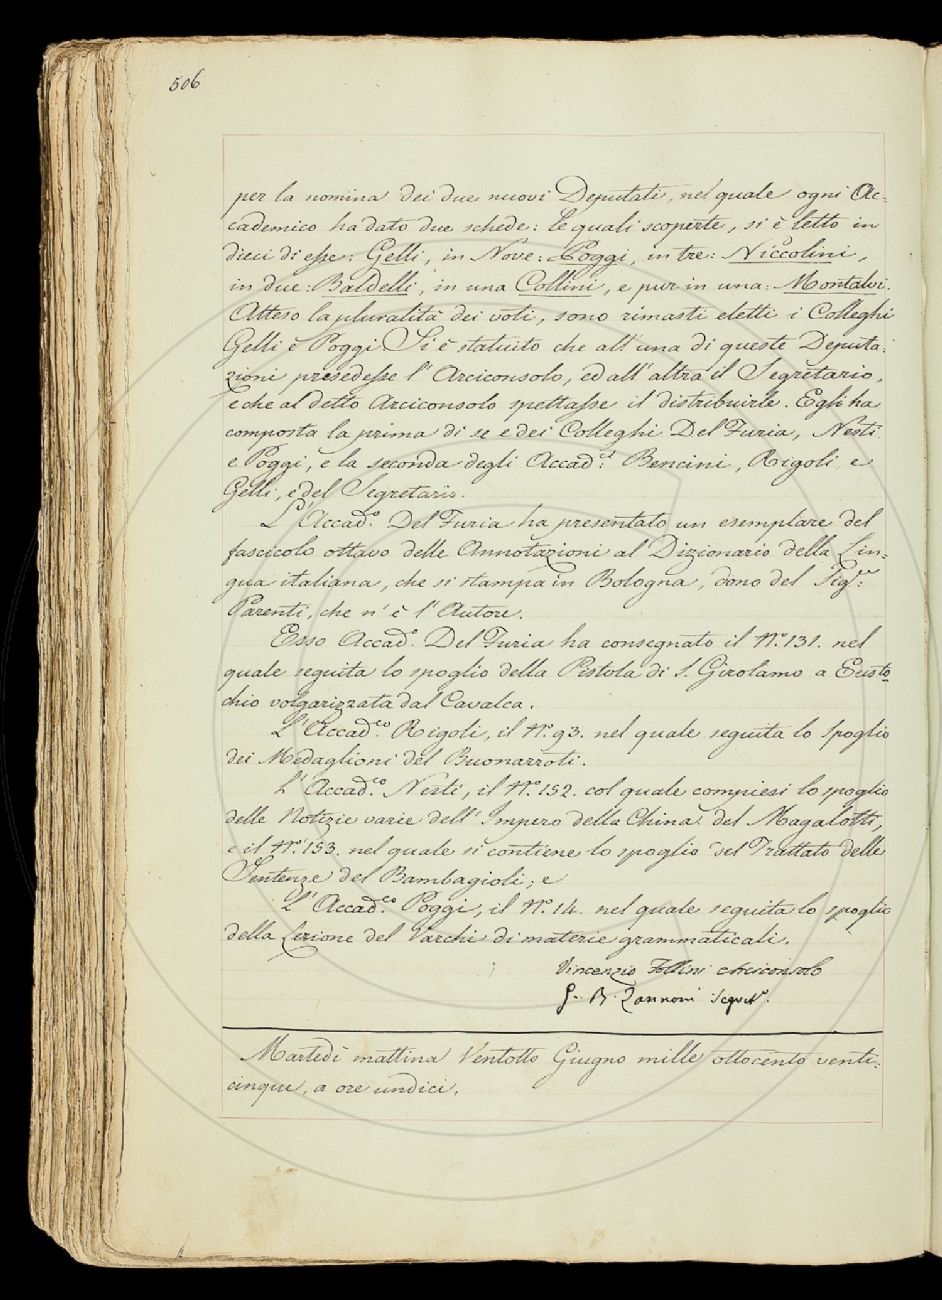 506
per la nomina dei due nuovi Deputati, nel quale ogni Ac-
cademico ha dato due schede: le quali scoperte, si è letto in
dieci di esse: Gelli, in Nove: Poggi, in tre: Niccolini,
in due: Baldelli, in una Collini, e pur in una: Montalvi.
Atteso la pluralità dei voti, sono rimasti eletti i Colleghi
Gelli e Poggi. Si è statuito che all' una di queste Deputa-
zioni presedesse l' Arciconsolo, ed all' altra il Segretario,
e che al detto Arciconsolo spettasse il distribuirle. Egli ha
composta la prima di se e dei Colleghi Del Furia, Nesti
e Poggi, e la seconda degli Accad.ci Bencini, Rigoli, e
Gelli, e del Segretario.
L' Accad.co Del Furia ha presentato un esemplare del
fascicolo ottavo delle Annotazioni al Dizionario della Lin-
gua italiana, che si stampa in Bologna, dono del Sig.r
Parenti, che n' è l' Autore.
Esso Accad.o Del Furia ha consegnato il N.o 131. nel
quale seguita lo spoglio della Pistola di S. Girolamo a Eusto-
chio volgarizzata dal Cavalca.
L' Accad.co Rigoli, il N.o 93. nel quale seguita lo spoglio
dei Medaglioni del Buonarroti.
L' Accad.co Nesti, il N.o 152. col quale compiesi lo spoglio
delle Notizie varie dell' Impero della China del Magalotti,
e il N.o 153. nel quale si contiene lo spoglio del Trattato delle
Sentenze del Bambagioli; e
L' Accad.co Poggi, il N.o 14. nel quale seguita lo spoglio
della Lezione del Varchi di materie grammaticali.
Vincenzio Follini Arciconsolo
G. B. Zannoni Segret.o
Martedì mattina Ventotto Giugno mille ottocento venti-
cinque, a ore undici.